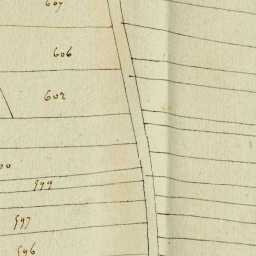 607
606
602
00
599
597
596